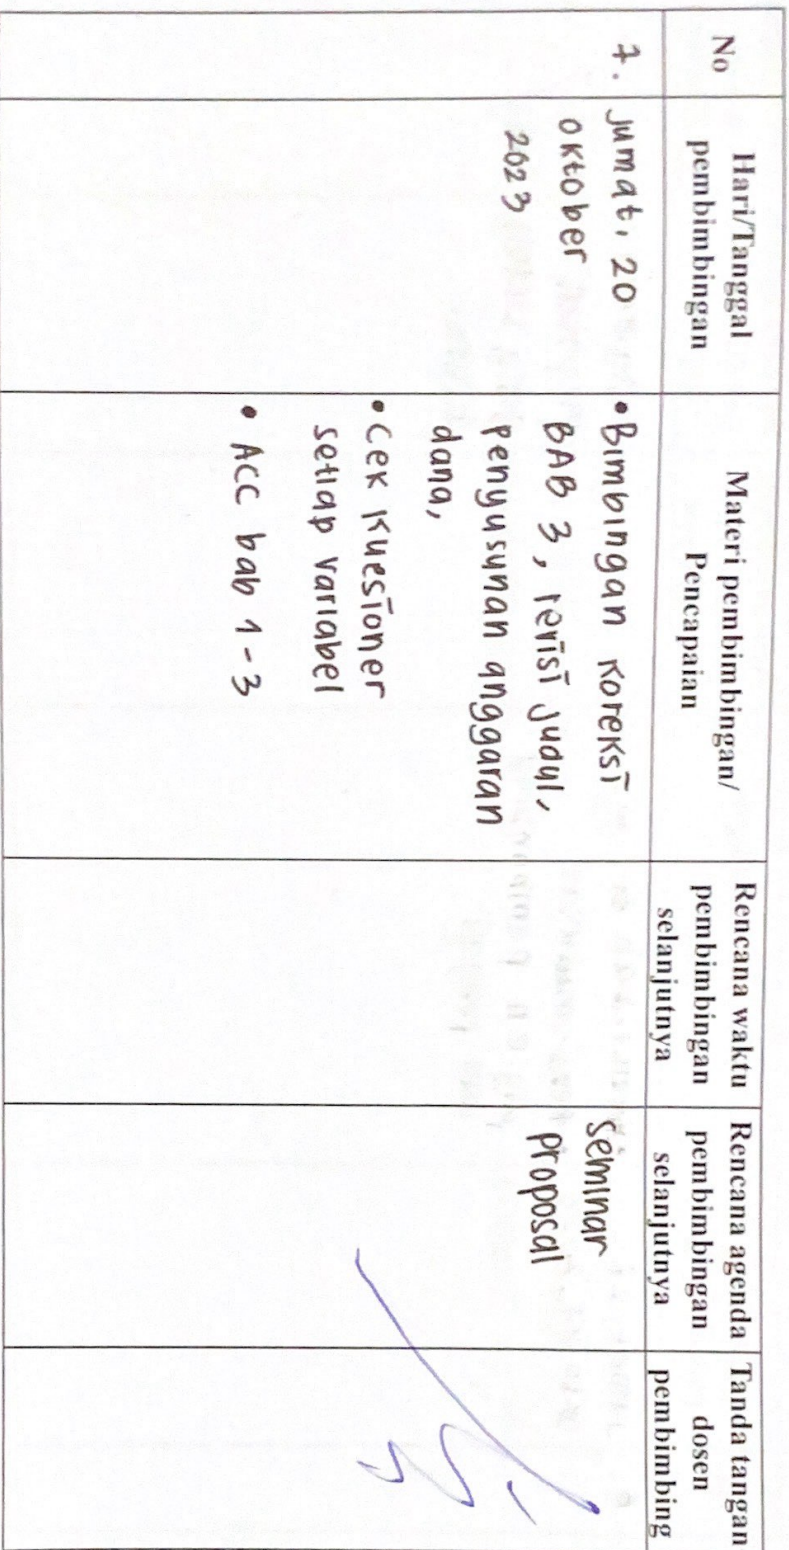 No
Hari/Tanggal
pembimbingan
Materi pembimbingan/
Pencapaian
Rencana waktu
pembimbingan
selanjutnya
Rencana agenda
pembimbingan
selanjutnya
Tanda tangan
dosen
pembimbing
7.
jumat, 20
oktober
2023
• Bimbingan koreksi
BAB 3, revisi judul,
penyusunan anggaran
dana,
• Cek kuesioner
setiap variabel
• ACC bab 1-3
Seminar
proposal